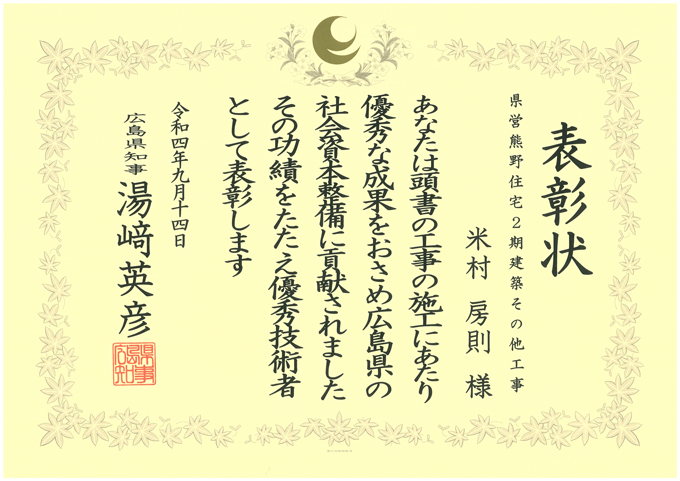 表彰状
県営熊野住宅２期建築その他工事
米村 房則 様
あなたは頭書の工事の施工にあたり
優秀な成果をおさめ広島県の
社会資本整備に貢献されました
その功績をたたえ優秀技術者
として表彰します
令和四年九月十四日
広島県知事 湯﨑英彦
広島県知事